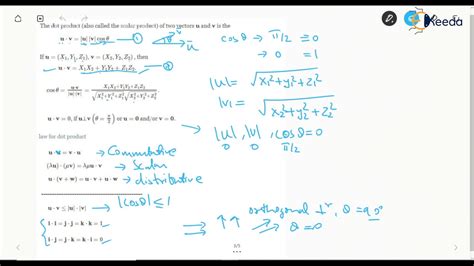 The dot product (also called the scalar product) of two vectors u and v is the
u · v = |u| |v| cos θ ①
If u = (X₁, Y₁, Z₁), v = (X₂, Y₂, Z₂), then
u · v = X₁X₂ + Y₁Y₂ + Z₁Z₂ ②
cos θ = u·v / |u||v| = X₁X₂ + Y₁Y₂ + Z₁Z₂ / √X₁² + Y₁² + Z₁² √X₂² + Y₂² + Z₂²
u · v = 0, if u ⊥ v (θ = π/2) or u = 0 and/or v = 0.
law for dot product
u · v = v · u → Commutative
(λu) · (ρv) = λρu · v → Scalar
u · (v + w) = u · v + u · w → distributive
u · v ≤ |u| · |v| → |cos θ| ≤ 1
i · i = j · j = k · k = 1
i · j = j · k = k · i = 0
Keeda
cos θ → π/2 = 0
→ 0 = 1
|u| = √x₁² + y₁² + z₁²
|v| = √x₂² + y₂² + z₂²
|u|, |v|, cos θ = 0
0 0 π/2
orthogonal ⊥ʳ, θ = 90°
θ = 0
3/5